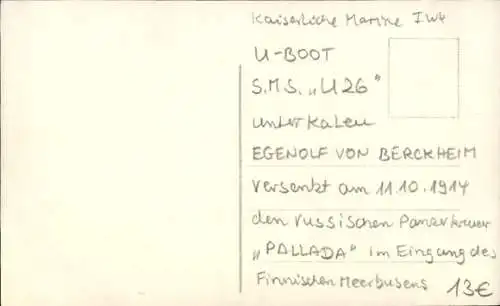 Kaiserliche Marine IWK
U-BOOT
S.M.S. „U26"
unter Kaleu
EGENOLF VON BERCKHEIM
versenkt am 11.10.1914
den russischen Panzerkreuer
„PALLADA" im Eingang des
Finnischen Meerbusens 13€